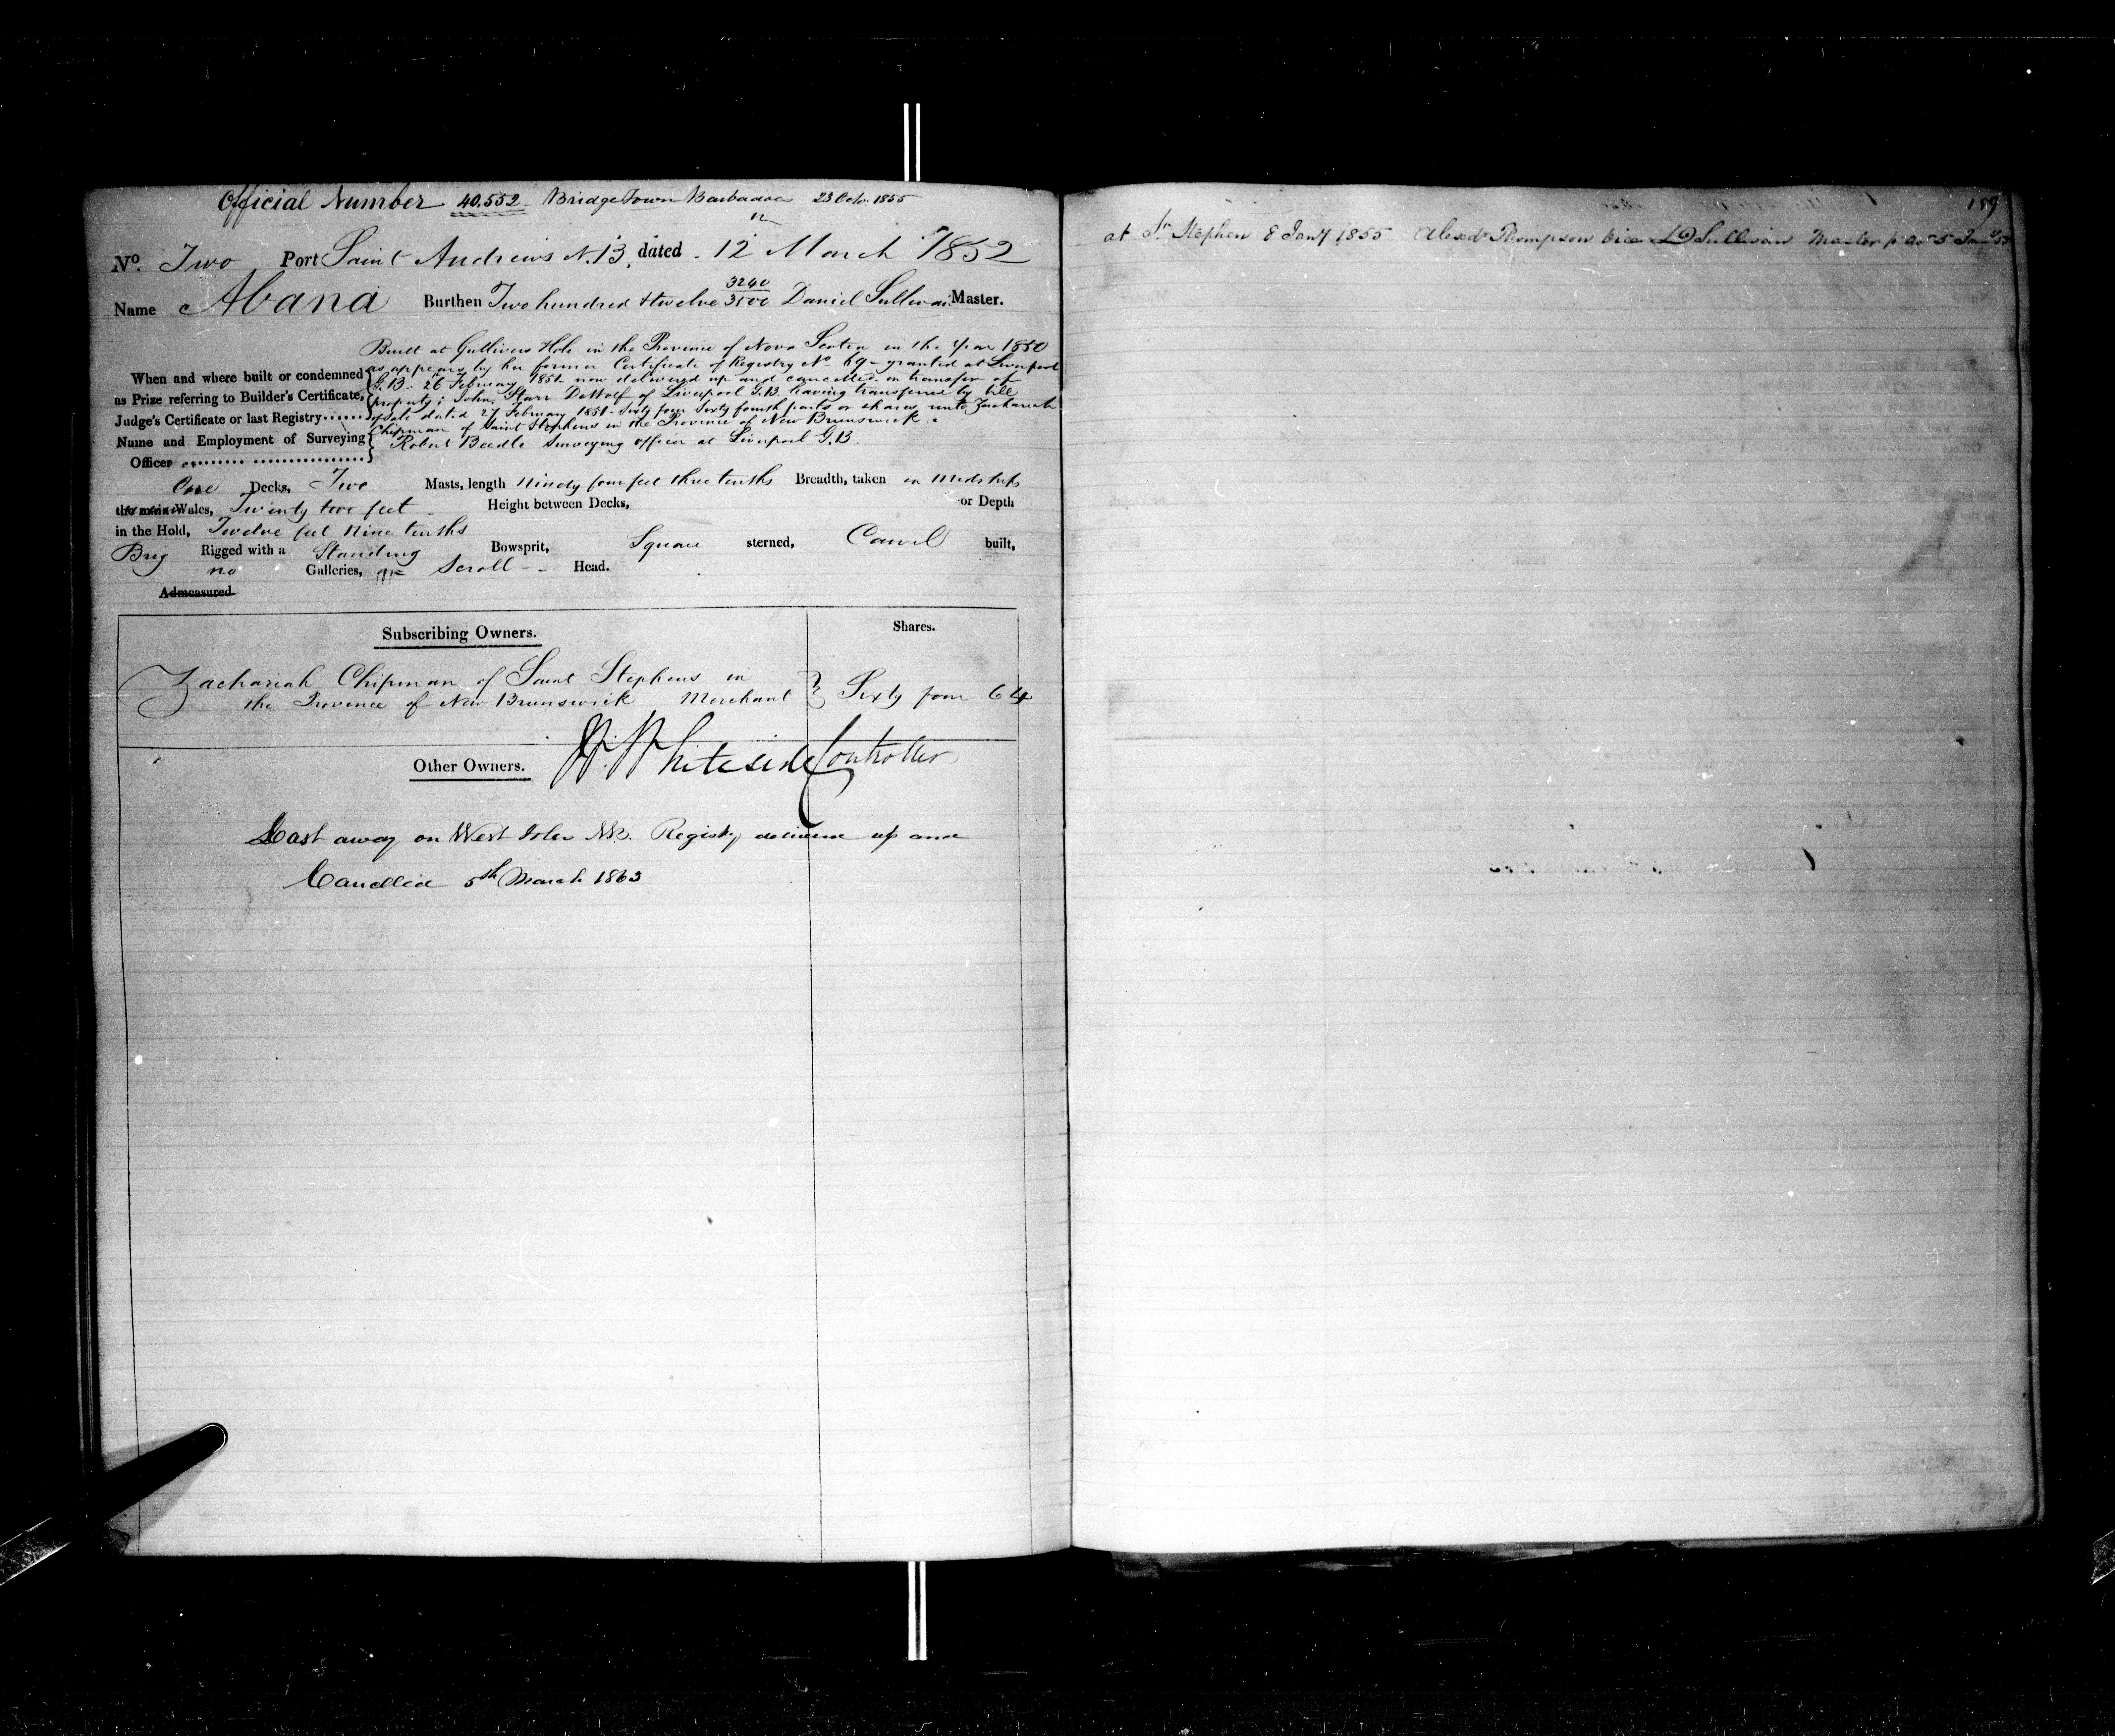 Official Number 40.552 Bridge Town Barbados 23 Octr. 1855
No. Two Port Saint Andrews N.B. dated 12 March 1852
3240
Name Abana Burthen Two hundred & twelve 3500 Daniel Sullivan Master.
Built at Gullivers Hole in the Province of Nova Scotia in the Year 1850
as appears by her former Certificate of Registry No. 69 granted at Liverpool
When and where built or condemned G.B. 26 February 1851 now delivered up and cancelled on transfer of
as Prize referring to Builder's Certificate, property; John Starr DeWolf of Liverpool G.B. having transferred by bill
Judge's Certificate or last Registry...... of Sale dated 27 February 1851 Sixty four Sixty fourth parts or shares unto Zachariah
Chipman of Saint Stephens in the Province of New Brunswick.
Name and Employment of Surveying Robert Beedle Surveying officer at Liverpool G.B.
Officer
One Decks, Two Masts, length Ninety four feet three tenths Breadth, taken in Midships
the main Wales, Twenty two feet Height between Decks, or Depth
in the Hold, Twelve feet Nine tenths
Brig Rigged with a Standing Bowsprit, Square sterned, Carvel built,
no Galleries, Scroll Head.
Admeasured
Subscribing Owners. Shares.
Zachariah Chipman of Saint Stephens in
the Province of New Brunswick Merchant Sixty four 64
Other Owners. Whiteside Controller
Cast away on West Isles NB. Registry delivered up and
Cancelled 5th March 1863
159
at St. Stephen 8 Jany 1855 Alexdr Thompson vice D Sullivan Master